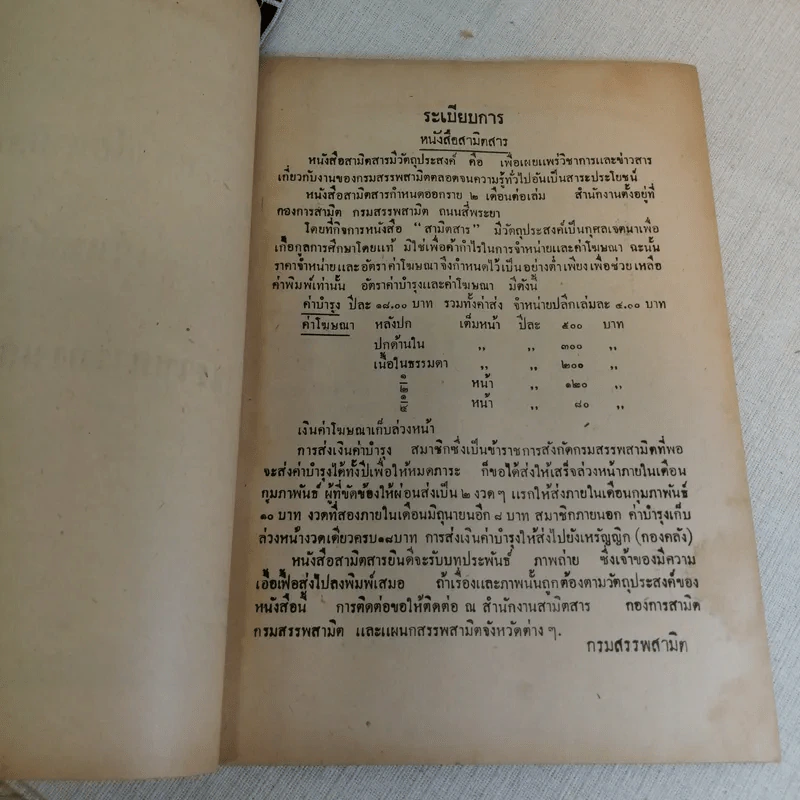 ระเบียบการ
หนังสือสามิตสาร
หนังสือสามิตสารมีวัตถุประสงค์ คือ เพื่อเผยแพร่วิชาการและข่าวสาร
เกี่ยวกับงานของกรมสรรพสามิตตลอดจนความรู้ทั่วไปอันเป็นสาระประโยชน์
หนังสือสามิตสารกำหนดออกราย ๒ เดือนต่อเล่ม สำนักงานตั้งอยู่ที่
กองการสามิต กรมสรรพสามิต ถนนสี่พระยา
โดยที่กิจการหนังสือ "สามิตสาร" มีวัตถุประสงค์เป็นกุศลเจตนาเพื่อ
เกื้อกูลการศึกษาโดยแท้ มิใช่เพื่อค้ากำไรในการจำหน่ายและค่าโฆษณา ฉะนั้น
ราคาจำหน่ายและอัตราค่าโฆษณาจึงกำหนดไว้เป็นอย่างต่ำเพียงเพื่อช่วยเหลือ
ค่าพิมพ์เท่านั้น อัตราค่าบำรุงและค่าโฆษณา มีดังนี้
ค่าบำรุง ปีละ ๑๘.๐๐ บาท รวมทั้งค่าส่ง จำหน่ายปลีกเล่มละ ๔.๐๐ บาท
ค่าโฆษณา หลังปก เต็มหน้า ปีละ ๕๐๐ บาท
ปกด้านใน ,, ,, ๓๐๐ ,,
เนื้อในธรรมดา ,, ,, ๒๐๐ ,,
๑/๒ หน้า ,, ๑๒๐ ,,
๑/๔ หน้า ,, ๘๐ ,,
เงินค่าโฆษณาเก็บล่วงหน้า
การส่งเงินค่าบำรุง สมาชิกซึ่งเป็นข้าราชการสังกัดกรมสรรพสามิตที่พอ
จะส่งค่าบำรุงได้ทั้งปีเพื่อให้หมดภาระ ก็ขอได้ส่งให้เสร็จล่วงหน้าภายในเดือน
กุมภาพันธ์ ผู้ที่ขัดข้องให้ผ่อนส่งเป็น ๒ งวดๆ แรกให้ส่งภายในเดือนกุมภาพันธ์
๑๐ บาท งวดที่สองภายในเดือนมิถุนายนอีก ๘ บาท สมาชิกภายนอก ค่าบำรุงเก็บ
ล่วงหน้างวดเดียวครบ๑๘บาท การส่งเงินค่าบำรุงให้ส่งไปยังเหรัญญิก (กองคลัง)
หนังสือสามิตสารยินดีจะรับบทประพันธ์ ภาพถ่าย ซึ่งเจ้าของมีความ
เอื้อเฟื้อส่งไปลงพิมพ์เสมอ ถ้าเรื่องและภาพนั้นถูกต้องตามวัตถุประสงค์ของ
หนังสือนี้ การติดต่อขอให้ติดต่อ ณ สำนักงานสามิตสาร กองการสามิต
กรมสรรพสามิต และแผนกสรรพสามิตจังหวัดต่าง ๆ.
กรมสรรพสามิต